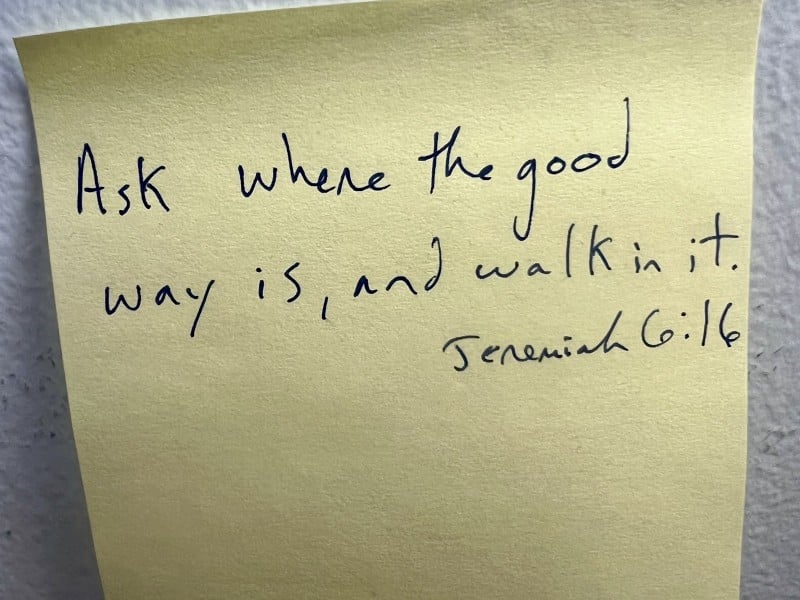 Ask where the good
way is, and walk in it.
Jeremiah 6:16